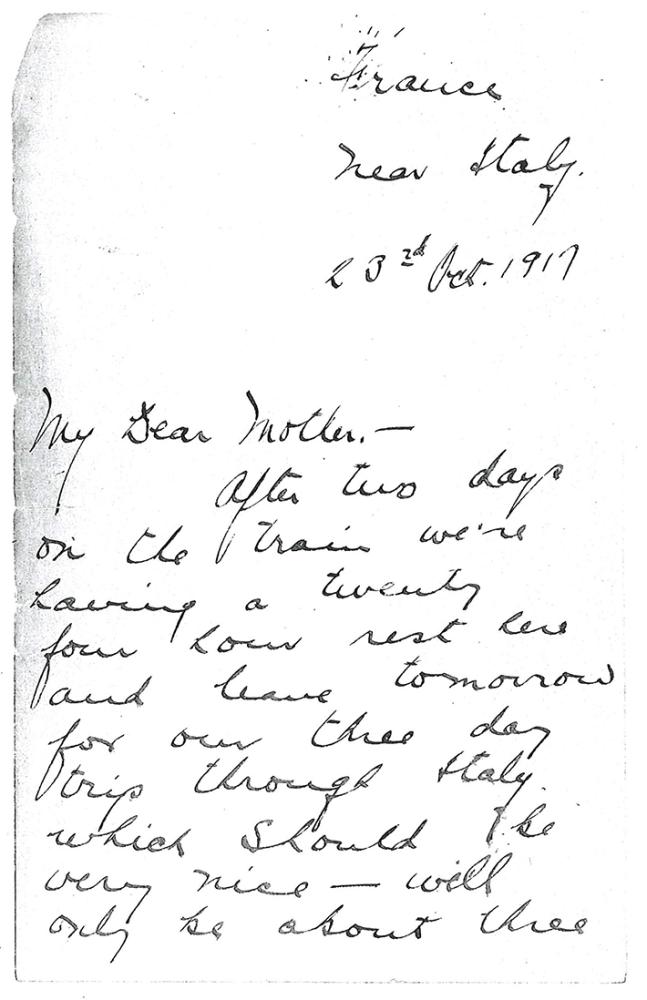 France
Near Italy.
23rd Oct. 1917
My Dear Mother. —
After two days
on the train we're
having a twenty
four hour rest here
and leave tomorrow
for our three day
trip through Italy
which should be
very nice — will
only be about three